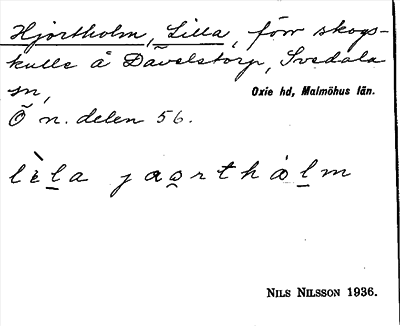 Hjortholm, Lilla, förr skogs-
kulle å Dävelstorp, Svedala
sn,
Oxie hd, Malmöhus län.
Ö n. delen 56.
lila jaort hålm
NILS NILSSON 1936.